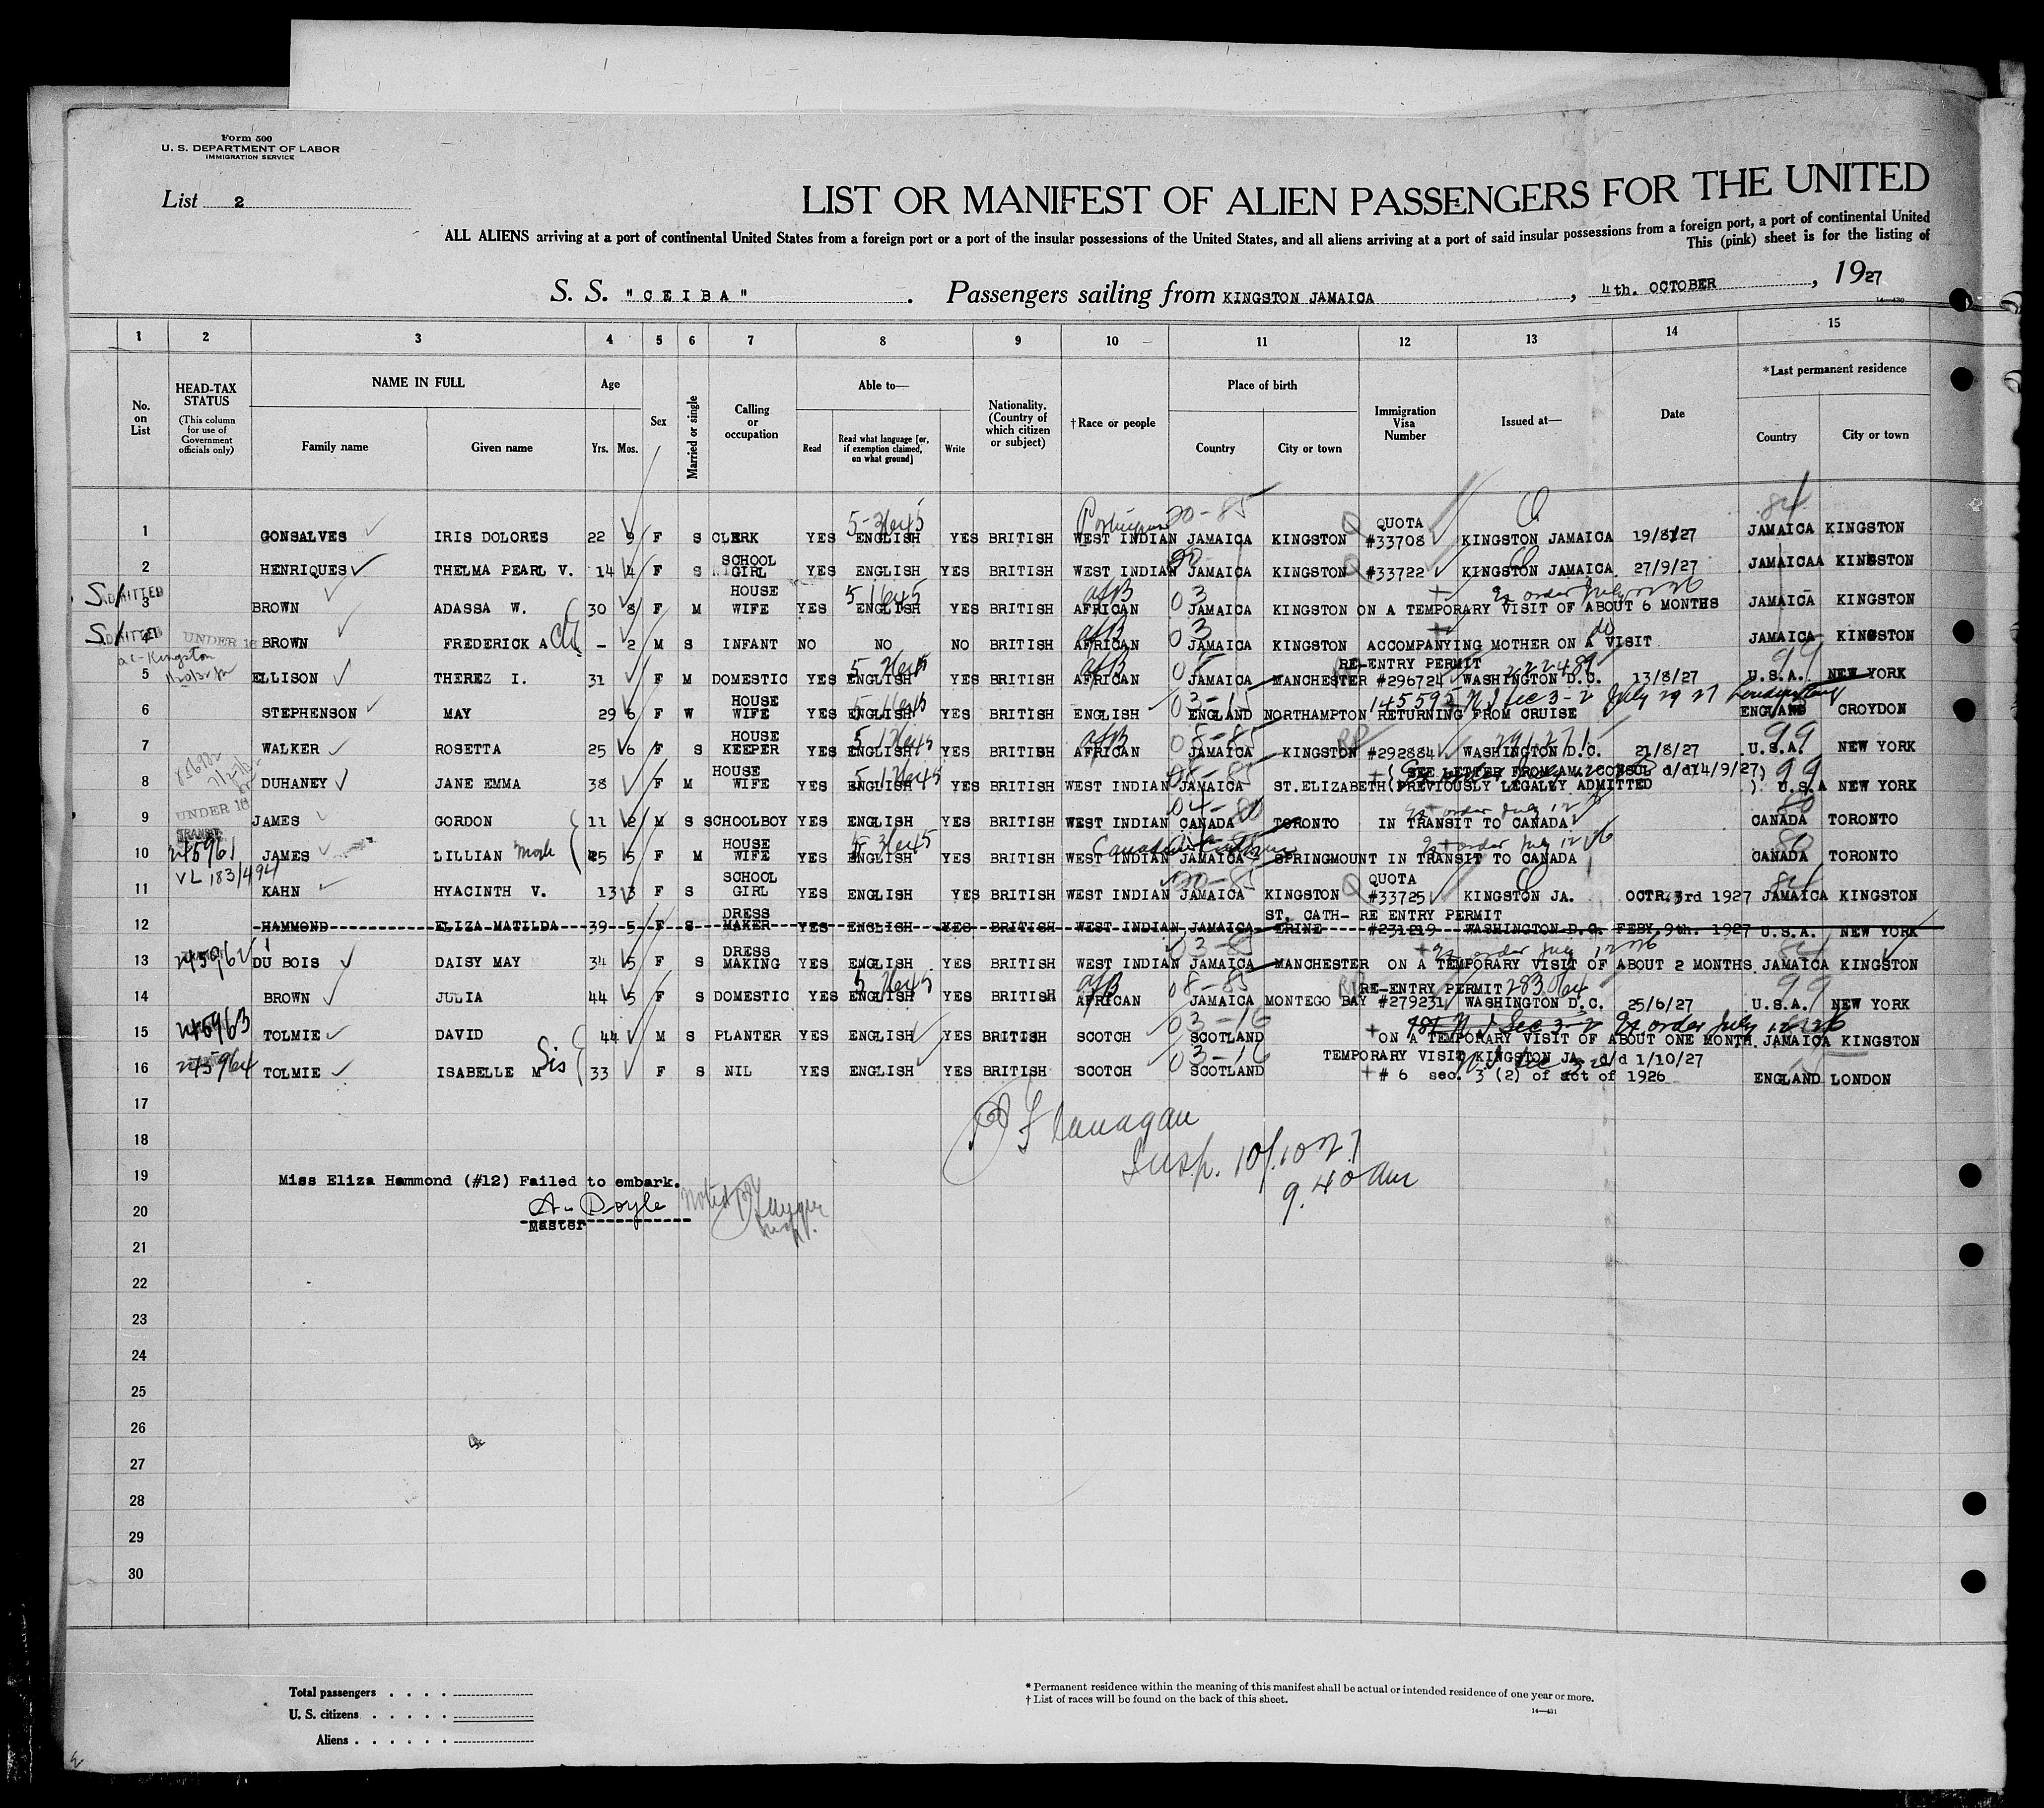 Form 500
U. S. DEPARTMENT OF LABOR
IMMIGRATION SERVICE
List 2
LIST OR MANIFEST OF ALIEN PASSENGERS FOR THE UNITED
ALL ALIENS arriving at a port of continental United States from a foreign port or a port of the insular possessions of the United States, and all aliens arriving at a port of said insular possessions from a foreign port, a port of continental United
This (pink) sheet is for the listing of
S. S. "CEIBA" . Passengers sailing from KINGSTON JAMAICA , 4th. OCTOBER , 1927
14—430
1 2 3 4 5 6 7 8 9 10 11 12 13 14 15
No. on List
HEAD-TAX STATUS (This column for use of Government officials only)
NAME IN FULL Family name Given name
Age Yrs. Mos.
Sex
Married or single
Calling or occupation
Able to— Read Read what language [or, if exemption claimed, on what ground] Write
Nationality. (Country of which citizen or subject)
†Race or people
Place of birth Country City or town
Immigration Visa Number
Issued at—
Date
*Last permanent residence Country City or town
1 GONSALVES IRIS DOLORES 22 9 F S CLERK YES ENGLISH YES BRITISH WEST INDIAN JAMAICA KINGSTON QUOTA #33708 KINGSTON JAMAICA 19/8/27 JAMAICA KINGSTON
2 HENRIQUES THELMA PEARL V. 14 4 F S SCHOOL GIRL YES ENGLISH YES BRITISH WEST INDIAN JAMAICA KINGSTON #33722 KINGSTON JAMAICA 27/9/27 JAMAICAA KINGSTON
ADMITTED
3 BROWN ADASSA W. 30 8 F M HOUSE WIFE YES ENGLISH YES BRITISH AFRICAN JAMAICA KINGSTON ON A TEMPORARY VISIT OF ABOUT 6 MONTHS JAMAICA KINGSTON
4 UNDER 16 BROWN FREDERICK A – 2 M S INFANT NO NO NO BRITISH AFRICAN JAMAICA KINGSTON ACCOMPANYING MOTHER ON A VISIT JAMAICA KINGSTON
5 ELLISON THEREZ I. 31 F M DOMESTIC YES ENGLISH YES BRITISH AFRICAN JAMAICA MANCHESTER RE-ENTRY PERMIT #296724 222489 WASHINGTON D.C. 13/8/27 U.S.A. NEW YORK
6 STEPHENSON MAY 29 6 F W HOUSE WIFE YES ENGLISH YES BRITISH ENGLISH ENGLAND NORTHAMPTON RETURNING FROM CRUISE ENGLAND CROYDON
7 WALKER ROSETTA 25 6 F S HOUSE KEEPER YES ENGLISH YES BRITISH AFRICAN JAMAICA KINGSTON #292884 WASHINGTON D.C. 21/8/27 U.S.A. NEW YORK
8 DUHANEY JANE EMMA 38 F M HOUSE WIFE YES ENGLISH YES BRITISH WEST INDIAN JAMAICA ST.ELIZABETH (SEE LETTER FROM AM. CONSUL d/d14/9/27) (PREVIOUSLY LEGALLY ADMITTED ) U.S.A NEW YORK
UNDER 16
9 JAMES GORDON 11 2 M S SCHOOLBOY YES ENGLISH YES BRITISH WEST INDIAN CANADA TORONTO IN TRANSIT TO CANADA CANADA TORONTO
10 245961 JAMES LILLIAN Moth 45 5 F M HOUSE WIFE YES ENGLISH YES BRITISH WEST INDIAN JAMAICA SPRINGMOUNT IN TRANSIT TO CANADA CANADA TORONTO
VL 183/494
11 KAHN HYACINTH V. 13 3 F S SCHOOL GIRL YES ENGLISH YES BRITISH WEST INDIAN JAMAICA KINGSTON QUOTA #33725 KINGSTON JA. OCTR. 3rd 1927 JAMAICA KINGSTON
12 HAMMOND ELIZA MATILDA 39 5 F S DRESS MAKER YES ENGLISH YES BRITISH WEST INDIAN JAMAICA ST. CATH-ERINE RE ENTRY PERMIT #231219 WASHINGTON D.C. FEBY. 9th. 1927 U.S.A. NEW YORK
13 245962 DU BOIS DAISY MAY 34 5 F S DRESS MAKING YES ENGLISH YES BRITISH WEST INDIAN JAMAICA MANCHESTER ON A TEMPORARY VISIT OF ABOUT 2 MONTHS. JAMAICA KINGSTON
14 BROWN JULIA 44 5 F S DOMESTIC YES ENGLISH YES BRITISH AFRICAN JAMAICA MONTEGO BAY RE-ENTRY PERMIT 283064 #279231 WASHINGTON D.C. 25/6/27 U.S.A. NEW YORK
15 245963 TOLMIE DAVID 44 M S PLANTER YES ENGLISH YES BRITISH SCOTCH SCOTLAND ON A TEMPORARY VISIT OF ABOUT ONE MONTH. JAMAICA KINGSTON
16 245964 TOLMIE ISABELLE M Sis 33 F S NIL YES ENGLISH YES BRITISH SCOTCH SCOTLAND TEMPORARY VISIT KINGSTON JA. d/d 1/10/27 # 6 sec. 3 (2) of act of 1926 ENGLAND LONDON
17
Flanagan
18
Insp. 10/10 27
19 Miss Eliza Hammond (#12) Failed to embark.
9.40 am
20 A. Doyle
Master
21
22
23
24
25
26
27
28
29
30
Total passengers . . . .
U. S. citizens . . . . .
Aliens . . . . . .
* Permanent residence within the meaning of this manifest shall be actual or intended residence of one year or more.
† List of races will be found on the back of this sheet.
14—431